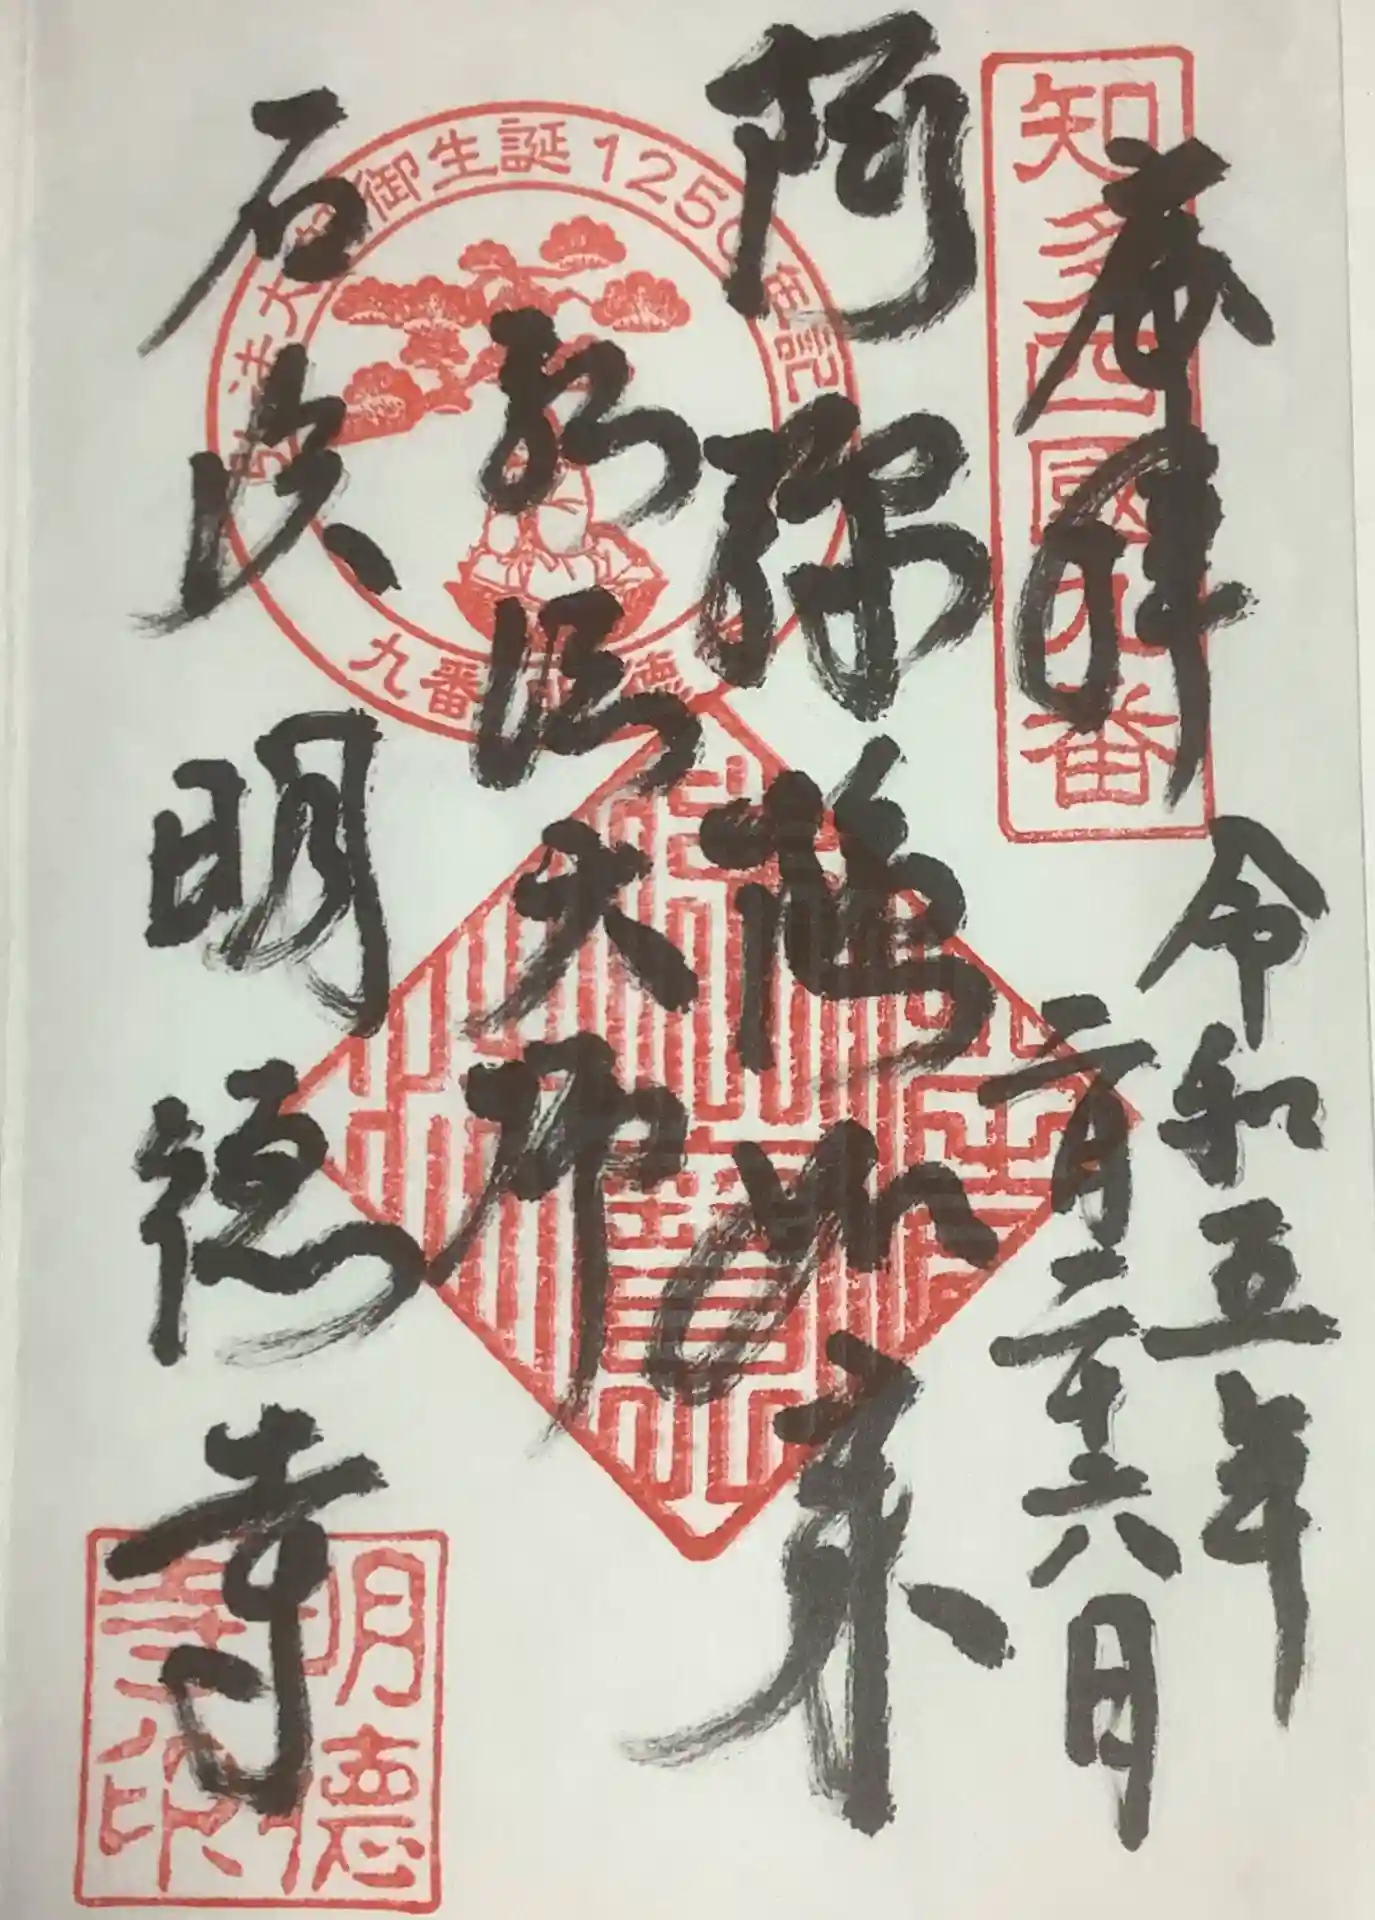 知多四國九番
奉拝
令和五年
二月二十六日
阿弥陀如来
弘法大師
石浜明徳寺
弘法大師御生誕1250年記
九番明徳
明德寺印